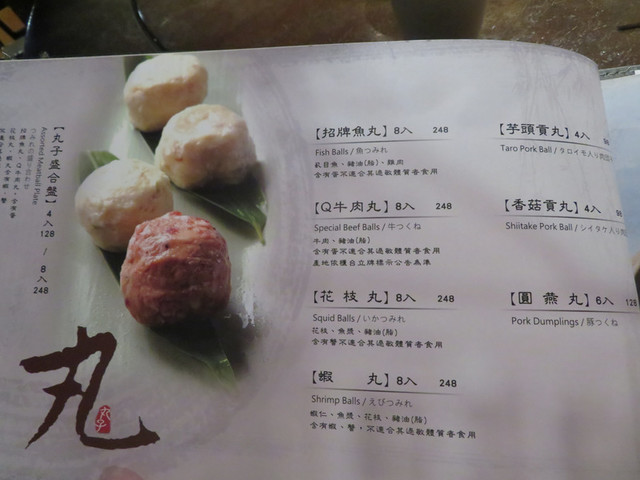 【丸子盛合盤】4入 128 / 8入 248
Assorted Meatball Plate
つみれの盛り合わせ
丸
丸子
【招牌魚丸】8入 248
Fish Balls / 魚つみれ
虱目魚、豬油(脂)、雞肉
含有蛋不適合其過敏體質者食用
【Q牛肉丸】8入 248
Special Beef Balls / 牛つくね
牛肉、豬油(脂)
含有蛋不適合其過敏體質者食用
產地依櫃台立牌標示公告為準
【花枝丸】8入 248
Squid Balls / いかつみれ
花枝、魚漿、豬油(脂)
含有蟹不適合其過敏體質者食用
【蝦 丸】8入 248
Shrimp Balls / えびつみれ
蝦仁、魚漿、花枝、豬油(脂)
含有蝦、蟹，不適合其過敏體質者食用
【芋頭貢丸】4入
Taro Pork Ball / タロイモ入り肉団
【香菇貢丸】4入
Shiitake Pork Ball / シイタケ入り肉
【圓燕丸】6入 128
Pork Dumplings / 豚つくね